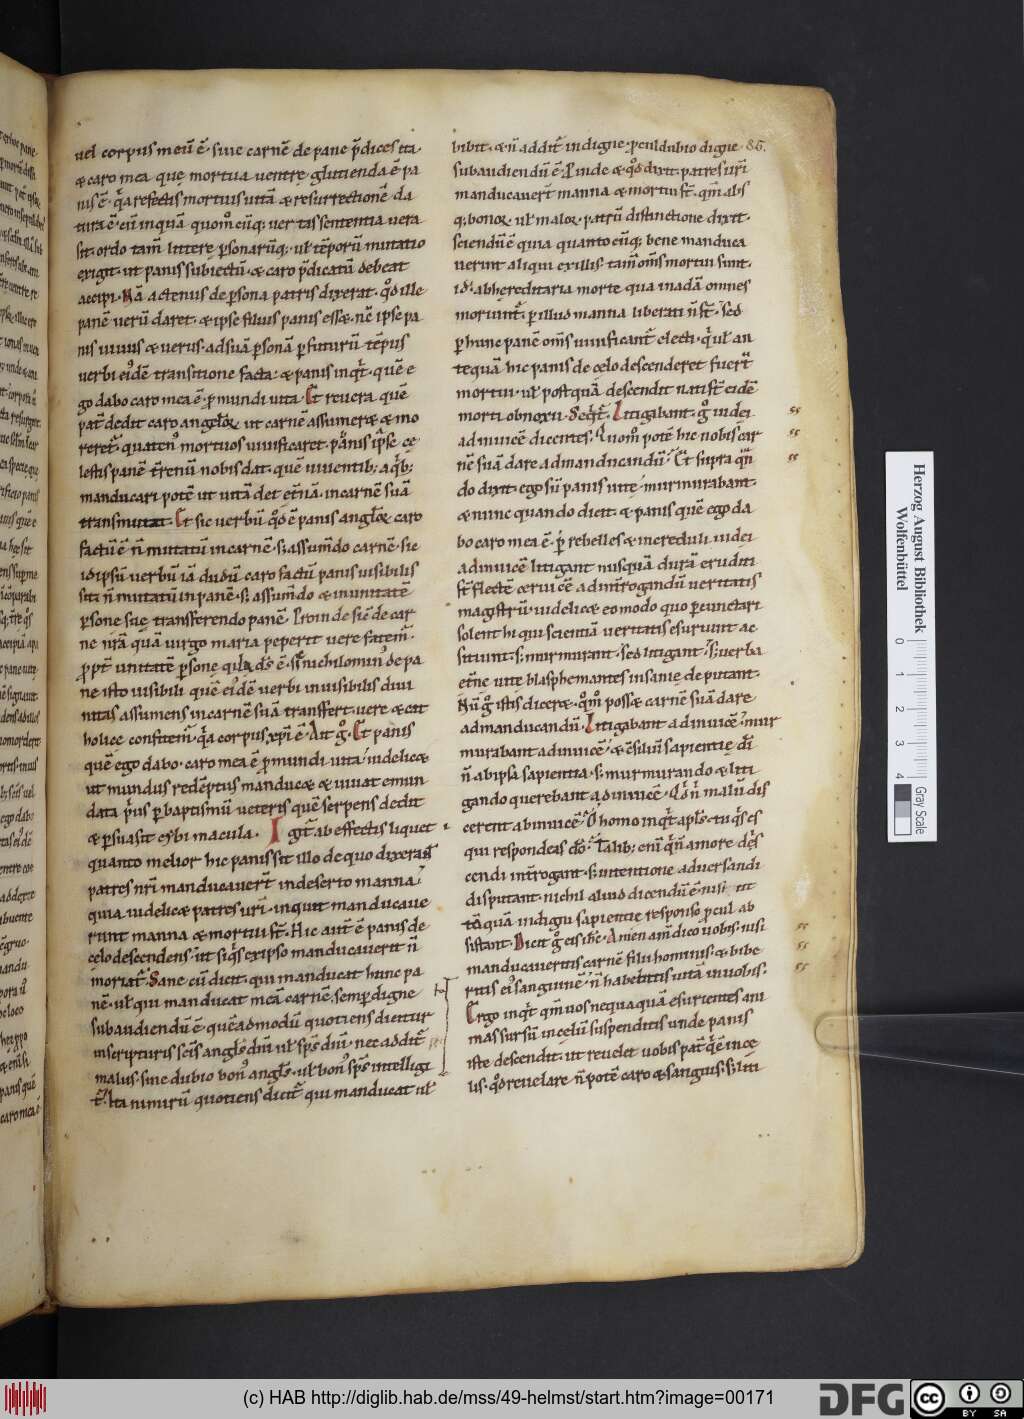 uel corpus meũ ẽ· siue carnẽ de pane p̃dices ita
& caro mea que mortua uentrę glutienda ẽ pa
nis ẽ· q̃a refectis mortuis uitã & resurrectionẽ da
tura ẽ· cũ inquã quom̊ cũq; uertas sententia uera
sit· ordo tam̃ litterę p̱sonarũq;· uł tẽporũ mutatio
exigit· ut panis subiectũ· & caro p̃dicatũ debeat
accipi· Nã actenus de p̱sona patris dixerat· qd̊ ille
panẽ uerũ daret· & ipse filius panis ess&· nẽ ipse pa
nis uiuus & uerus· ad suã p̱sonã p̱ futurũ tẽpus
uerbi ei'dẽ transitione facta· & panis inq̃t· quẽ e
go dabo caro mea ẽ· p̱ mundi uita· Et reuera quẽ
pat̃ dedit caro angloꝝ ut carnẽ assumer& & mo
reret̃· quaten' mortuos uiuificaret· p̃anis ip̃se cę
lestis panẽ t̃renũ nobis dat· quẽ uiuentib; aq̃b;
manducari potẽ ut uitã det et̃nã· in carnẽ suã
transmutat· Et sic uerbũ qd̊ ẽ panis angloꝝ caro
factũ ẽ ñ mutatũ in carnẽ· s; assum̃do carnẽ· sic
id ipsũ uerbũ iã dudũ caro factũ panis uisibilis
fit· ñ mutatũ in panẽ· s; assum̃do & in unitatẽ
p̱sone suę transferendo panẽ· Proinde sic̃ de car
ne nr̃a quã uirgo maria peperit uere fatem̃·
p̱pt̃ unitatẽ p̱sonę quia ds̃ ẽ· sic̃ nichilomin' de pa
ne isto uisibili quẽ ei'dẽ uerbi inuisibilis diui
nitas assumens in carnẽ suã transfert· uere & cat
holice confitem̃· q̃a corpus xp̃i ẽ· Ait g̊· Et panis
quẽ ego dabo· caro mea ẽ p̱ mundi uita· uidelic&
ut mundus redẽptus manduc& & uiuat emun
data p̱us p̱ baptismũ ueteris quẽ serpens dedit
& p̱suasit cybi macula· Igit̃ ab effectis liquet
quanto melior hic panis sit illo de quo dixerant
patres nr̃i manducauer̃t in deserto manna·
quia uidelic& patres uri· inquit manducaue
runt manna & mortui st̃· Hic aut̃ ẽ panis de
cęlo descendens· ut siq̃s ex ipso manducauerit ñ
moriat̃· Sane cũ dicit· qui manducat hunc pa
nẽ· uł qui manducat meã carnẽ· semp̱ digne
subaudiendũ ẽ· quẽadmodũ quotiens dicitur
in scripturis sc̃is angls̃ dñi uł sps̃ dñi· nec addit̃
malus· sine dubio bon' angls̃· uł bon' sps̃ intelligi
t̃· Ita nimirũ quotiens dicit̃ qui manducat uł
bibit· & ñ addit̃ indigne· p̱culdubio digne 86.
subaudiendũ ẽ· Proinde & qd̊ dixit· patres uri
manducauer̃t manna & mortui st̃· qm̃ abs
q; bonoꝝ uł maloꝝ patrũ distinctione dixit·
sciendũ ẽ quia quanto cũq; bene manduca
uerint aliqui ex illis· tam̃ om̃s mortui sunt·
id· ab hereditaria morte qua in adã omnes
moriunt̃· p̱ illud manna liberati ñ st̃· Sed
p̱ hunc panẽ om̃s uiuificant̃ electi· q̃ uł an
tequã hic panis de cęlo descenderet fuer̃t
mortui· uł postquã descendit nati st̃ eidẽ
morti obnoxii· Seqt̃· Litigabant g̊ iudei
ad inuicẽ dicentes· Quom̊ potẽ hic nobis car
nẽ suã dare ad manducandũ? Et supra qñ
do dixit· ego sũ panis uitę· murmurabant·
& nunc quando dicit· & panis quẽ ego da
bo caro mea ẽ· p̱ rebelles & increduli iudei
ad inuicẽ litigant· nusquã durã eruditi
st̃ flectẽ ceruicẽ· ad int̃rogandũ ueritatis
magistrũ· uidelic& eo modo quo p̱cunctari
solent hi qui scientiã ueritatis esuriunt ac
sitiunt· s; murmurant· sed litigant· s; uerba
et̃ne uitę blasphemantes insanię deputant·
Nũ g̊ istis dicere· qm̊ poss& carnẽ suã dare
ad manducandũ· Litigabant ad inuicẽ· mur
murabant ad inuicẽ· & c̃siliũ sapientię di
ñ ab ipsa sapientia· s; murmurando & liti
gando querebant ad inuicẽ· Qd̃ ñ malũ dis
cerent ab inuicẽ? O homo inqt̃ apls̃· tu qs̃ es
qui respondeas do? Talib; eni qñ amore des
cendi int̃rogant· s; intentione aduersandi
disputant· nichil aliud dicendũ ẽ· nisi ut
tãquã indigni sapientię responso p̱cul ab
sistant· Dicit g̊ eis ihc· Amen am̃ dico uobis· nisi
manducaueritis carnẽ filii hominis· & bibe
ritis ei' sanguinẽ· ñ habebitis uitã in uobis·
Ergo inqt̃ qm̃ uos nequaquã esurientes ani
mas sursũ in cęlũ suspenditis unde panis
iste descendit· ut reuelet uobis pat̃ q̃ ẽ in cę
lis· qd̊ reuelare ñ potẽ caro & sanguis· s; liti
Herzog August Bibliothek
Wolfenbüttel
0 1 2 3 4
Gray Scale
(c) HAB http://diglib.hab.de/mss/49-helmst/start.htm?image=00171
DFG
cc
BY SA